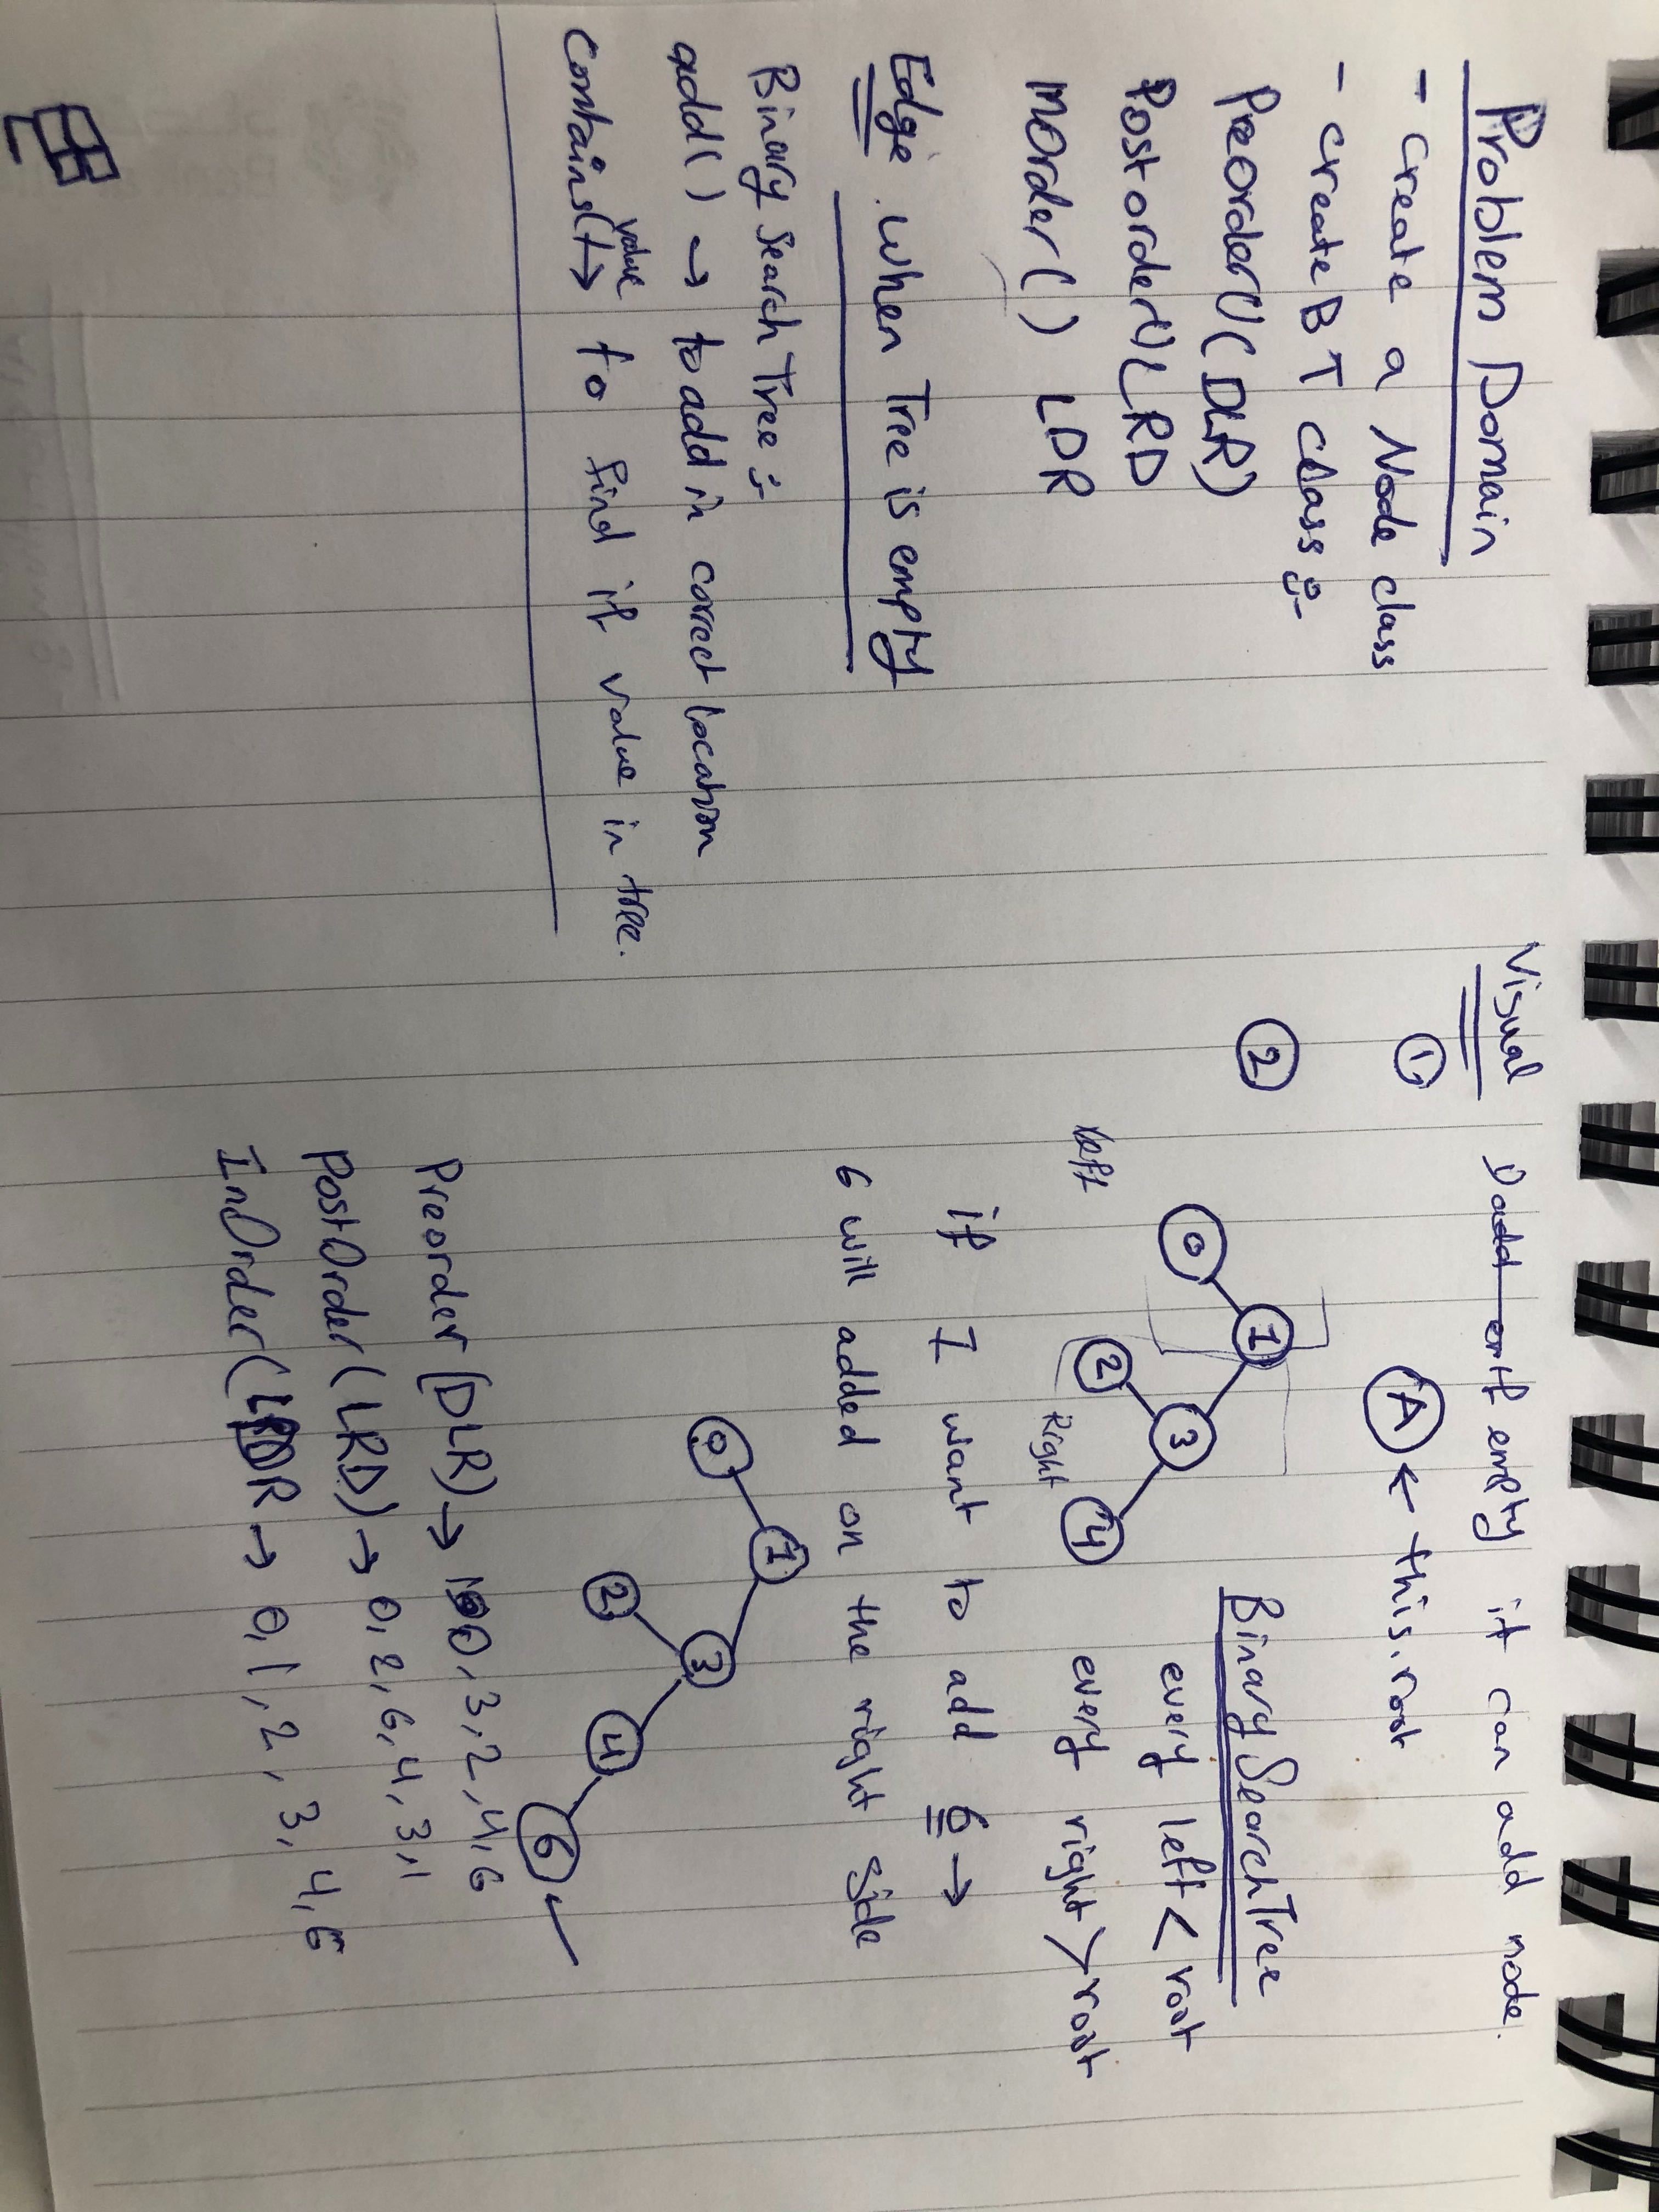 Problem Domain
- Create a Node class
- create BT class :-
PreOrder() (DLR)
Postorder() LRD
inOrder() LDR
Edge when Tree is empty
Binary Search Tree :-
add() → to add in correct location
contains(value) → to find if value in tree.
Visual
if empty it can add node.
1
A ← this.root
2
1
0
3
2
4
left
Right
BinarySearchTree
every left < root
every right > root
if I want to add 6 →
6 will added on the right side
1
0
3
2
4
6
Preorder (DLR) → 1, 0, 3, 2, 4, 6
PostOrder (LRD) → 0, 2, 6, 4, 3, 1
InOrder (LDR → 0, 1, 2, 3, 4, 6